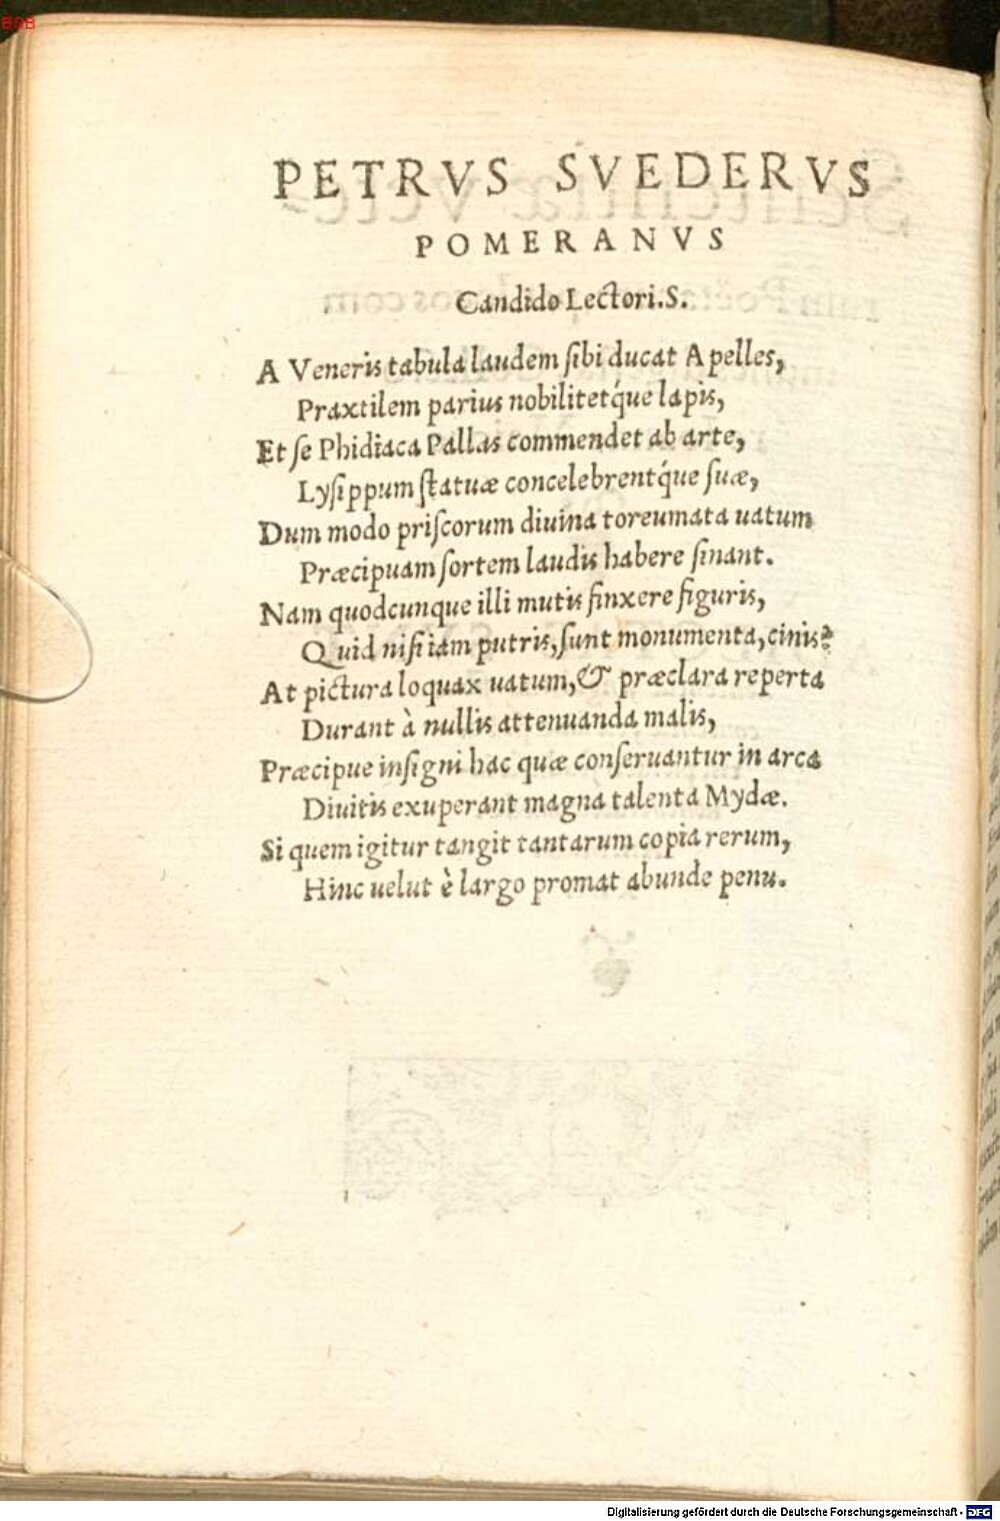 PETRVS SVEDERVS
POMERANVS
Candido Lectori.S.
A Veneris tabula laudem sibi ducat Apelles,
Praxtilem parius nobilitet'que lapis,
Et se Phidiaca Pallas commendet ab arte,
Lysippum statuæ concelebrent'que suæ,
Dum modo priscorum diuina toreumata uatum
Præcipuam sortem laudis habere sinant.
Nam quodcunque illi mutis finxere figuris,
Quid nisi iam putris, sunt monumenta, cinis?
At pictura loquax uatum, & præclara reperta
Durant à nullis attenuanda malis,
Præcipue insigni hac quæ conseruantur in arca
Diuitis exuperant magna talenta Mydæ.
Si quem igitur tangit tantarum copia rerum,
Hinc uelut è largo promat abunde penu.
Digitalisierung gefördert durch die Deutsche Forschungsgemeinschaft - DFG